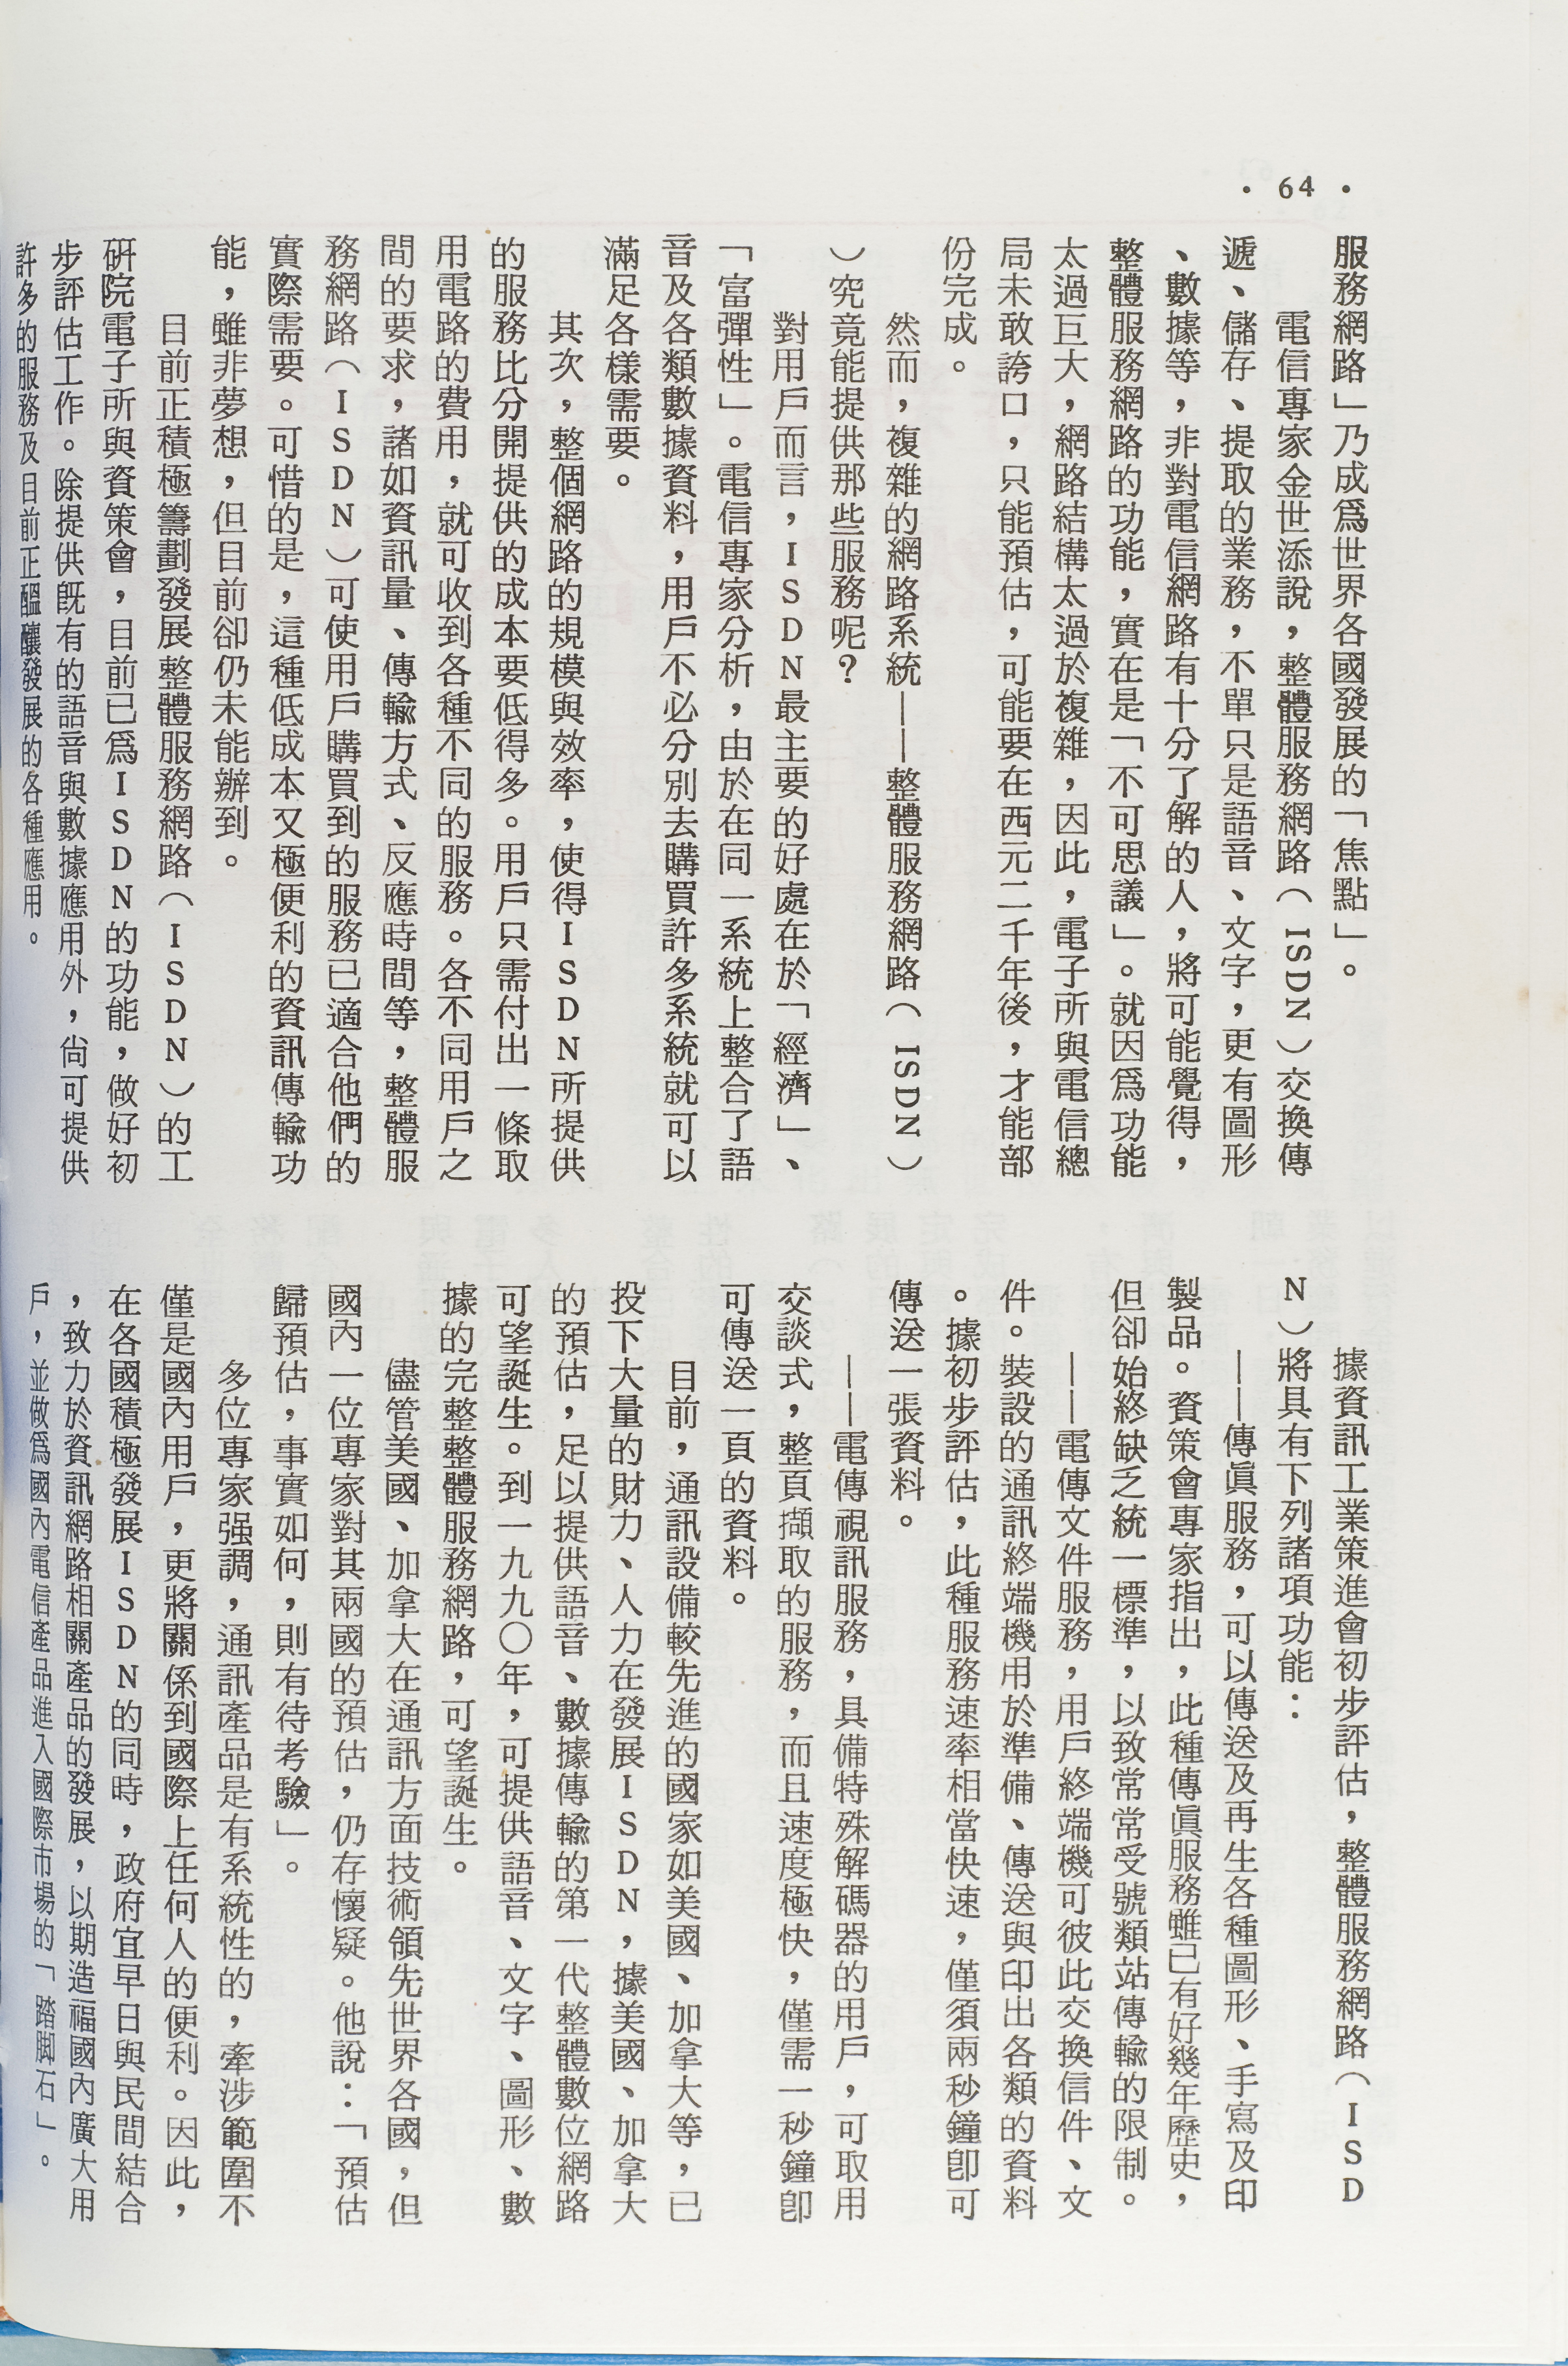 • 64 •
服務網路」乃成爲世界各國發展的「焦點」。
電信專家金世添說，整體服務網路（ISDN）交換傳
遞、儲存、提取的業務，不單只是語音、文字，更有圖形
、數據等，非對電信網路有十分了解的人，將可能覺得，
整體服務網路的功能，實在是「不可思議」。就因爲功能
太過巨大，網路結構太過於複雜，因此，電子所與電信總
局未敢誇口，只能預估，可能要在西元二千年後，才能部
份完成。
然而，複雜的網路系統——整體服務網路（ISDN）
）究竟能提供那些服務呢？
對用戶而言，ISDN最主要的好處在於「經濟」、
「富彈性」。電信專家分析，由於在同一系統上整合了語
音及各類數據資料，用戶不必分別去購買許多系統就可以
滿足各樣需要。
其次，整個網路的規模與效率，使得ISDN所提供
的服務比分開提供的成本要低得多。用戶只需付出一條取
用電路的費用，就可收到各種不同的服務。各不同用戶之
間的要求，諸如資訊量、傳輸方式、反應時間等，整體服
務網路（ISDN）可使用戶購買到的服務已適合他們的
實際需要。可惜的是，這種低成本又極便利的資訊傳輸功
能，雖非夢想，但目前卻仍未能辦到。
目前正積極籌劃發展整體服務網路（ISDN）的工
硏院電子所與資策會，目前已爲ISDN的功能，做好初
步評估工作。除提供旣有的語音與數據應用外，尙可提供
許多的服務及目前正醞釀發展的各種應用。
據資訊工業策進會初步評估，整體服務網路（ISD
N）將具有下列諸項功能：
——傳眞服務，可以傳送及再生各種圖形、手寫及印
製品。資策會專家指出，此種傳眞服務雖已有好幾年歷史，
但卻始終缺乏統一標準，以致常常受號類站傳輸的限制。
——電傳文件服務，用戶終端機可彼此交換信件、文
件。裝設的通訊終端機用於準備、傳送與印出各類的資料
。據初步評估，此種服務速率相當快速，僅須兩秒鐘卽可
傳送一張資料。
——電傳視訊服務，具備特殊解碼器的用戶，可取用
交談式，整頁擷取的服務，而且速度極快，僅需一秒鐘卽
可傳送一頁的資料。
目前，通訊設備較先進的國家如美國、加拿大等，已
投下大量的財力、人力在發展ISDN，據美國、加拿大
的預估，足以提供語音、數據傳輸的第一代整體數位網路
可望誕生。到一九九〇年，可提供語音、文字、圖形、數
據的完整整體服務網路，可望誕生。
儘管美國、加拿大在通訊方面技術領先世界各國，但
國內一位專家對其兩國的預估，仍存懷疑。他說：「預估
歸預估，事實如何，則有待考驗」。
多位專家强調，通訊產品是有系統性的，牽涉範圍不
僅是國內用戶，更將關係到國際上任何人的便利。因此，
在各國積極發展ISDN的同時，政府宜早日與民間結合
，致力於資訊網路相關產品的發展，以期造福國內廣大用
戶，並做爲國內電信產品進入國際市場的「踏脚石」。